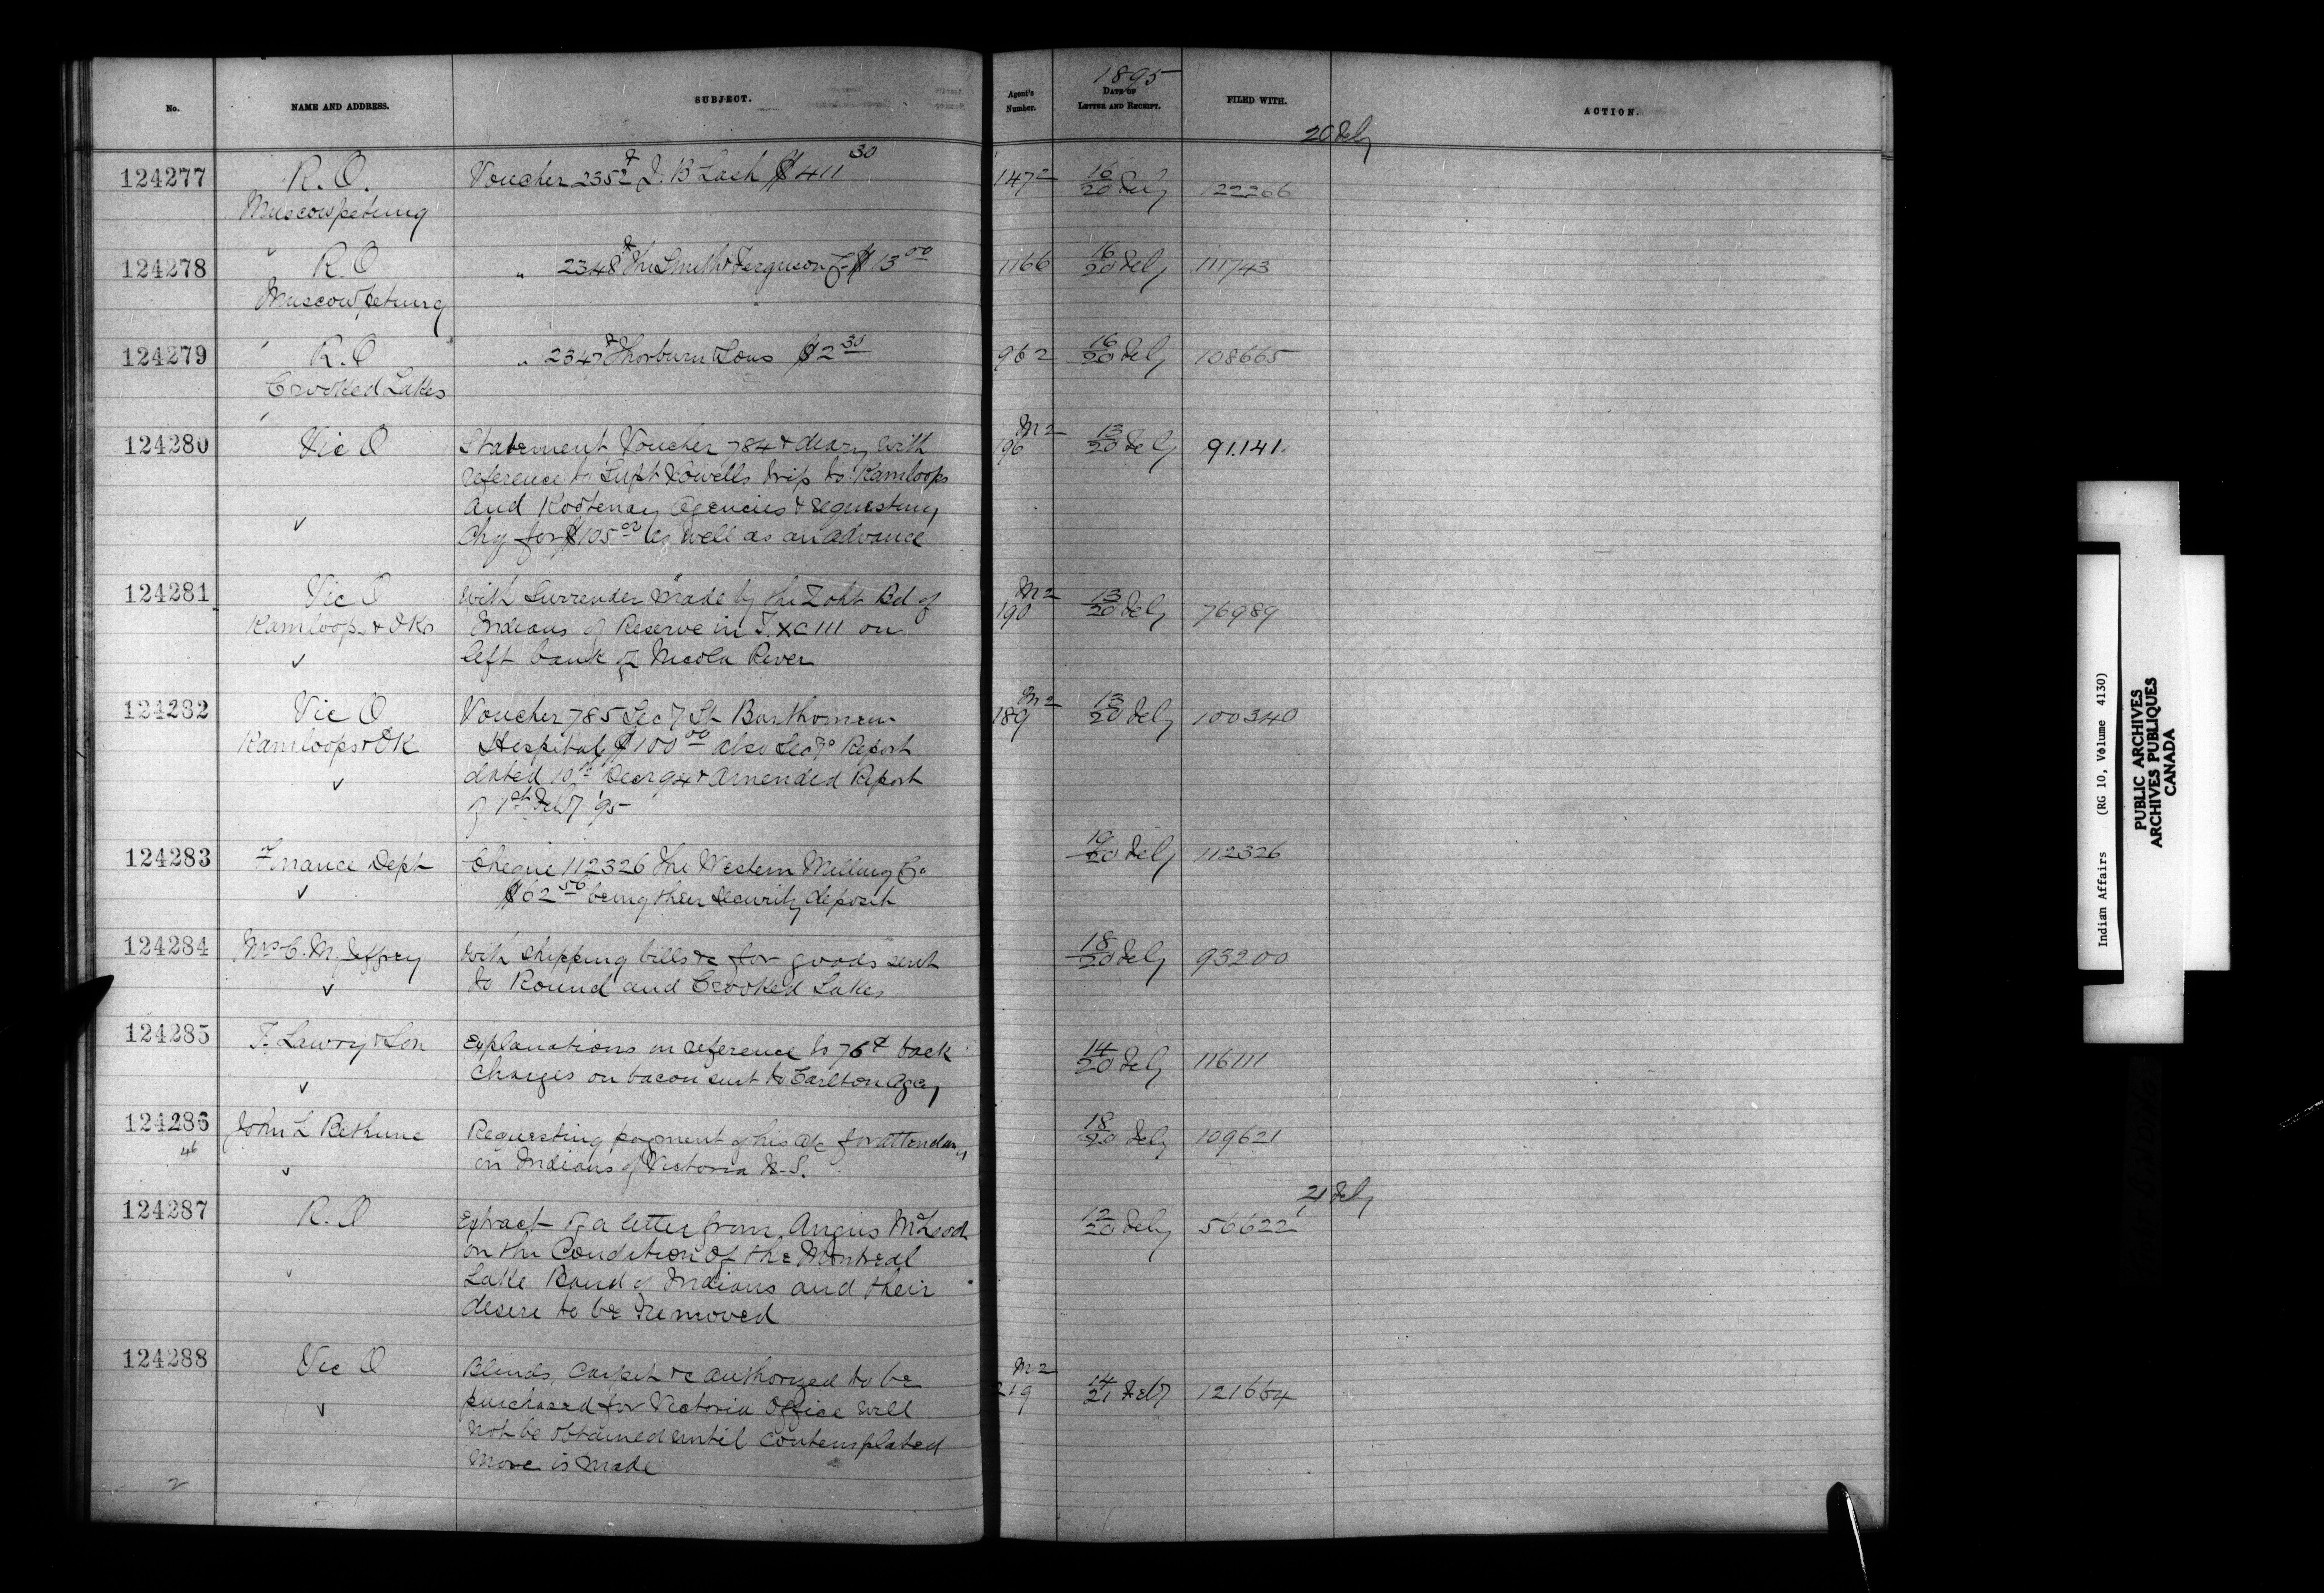 No.
NAME AND ADDRESS.
SUBJECT.
Agent's Number.
1895
DATE OF LETTER AND RECEIPT.
FILED WITH.
ACTION.
20 Feby
124277
R. O.
Muscowpetung
Voucher 2352 J. B Lash $411 30
1472
16/20 Feby
122266
124278
R. O
Muscowpetung
" 2348 The Smith & Ferguson Co $13 00
1166
16/20 Feby
111743
124279
R. O
Crooked Lakes
" 2347 Thorburn & Sons $2 35
962
16/20 Feby
108665
124280
Vic O
Statement, Voucher 784 & diary with
reference to Supt Vowells trip to Kamloops
and Kootenay Agencies & requesting
Chq for $105 00 as well as an advance
M2
196
13/20 Feby
91.141.
124281
Vic O
Kamloops & OK
With Surrender made by the Zoht Bd of
Indians of Reserve in T. XCIII on
left bank of Nicola River
M2
190
13/20 Feby
76989
124282
Vic O
Kamloops & OK
Voucher 785 Secy St Barthomew
Hospital $100 00 also Secys Report
dated 10th Decr 94 & amended Report
of 1st Feby '95
M2
189
13/20 Feby
100340
124283
Finance Dept
Cheque 112326 The Western Milling Co
$62 50 being their security deposit
19/20 Feby
112326
124284
Mrs C. M. Jeffrey
With shipping bills &c for goods sent
to Round and Crooked Lakes
18/20 Feby
93200
124285
T. Lawry & Son
Explanations in reference to 76¢ back
charges on bacon sent to Carlton Agcy
14/20 Feby
116111
124286
46
John L Bethune
Requesting payment of his a/c for attendance
on Indians of Victoria N.S.
18/20 Feby
109621
21 Feby
124287
R. O
Extract of a letter from Angus McLeod
on the Condition of the Montreal
Lake Band of Indians and their
desire to be removed
12/20 Feby
56622
124288
Vic O
Blinds, Carpet &c authorized to be
purchased for Victoria Office will
not be obtained until contemplated
move is made
M2
219
14/21 Feby
121664
2
Indian Affairs (RG 10, Volume 4130)
PUBLIC ARCHIVES
ARCHIVES PUBLIQUES
CANADA